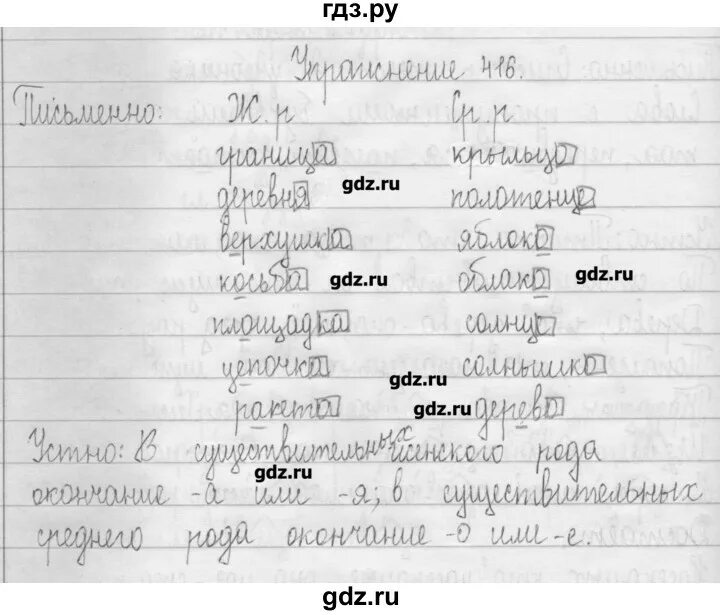 гдз.ру
Упражнение 416.
Письменно: Ж.р Ср.р
граница крыльцо
gdz.ru
деревня полотенце
верхушка яблоко
gdz.ru
косьба облако
gdz.ru
площадка солнце
цепочка солнышко
gdz.ru
ракета дерево
gdz.ru
Устно: В существительных женского рода
gdz.ru
окончание -а или -я; в существительных
среднего рода окончание -о или -е.
gdz.ru